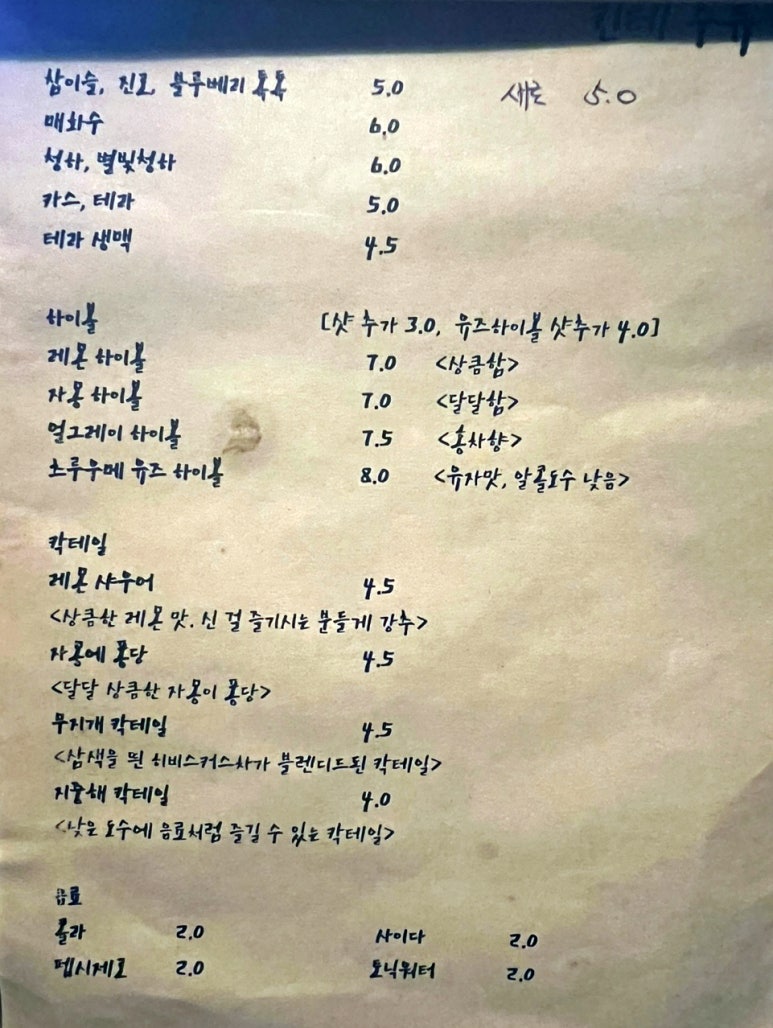 참이슬, 진로, 블루베리 톡톡 5.0 새로 5.0
매화수 6.0
청하, 별빛청하 6.0
카스, 테라 5.0
테라 생맥 4.5
하이볼 [샷 추가 3.0, 유즈하이볼 샷추가 4.0]
레몬 하이볼 7.0 <상큼함>
자몽 하이볼 7.0 <달달함>
얼그레이 하이볼 7.5 <홍차향>
츠루우메 유즈 하이볼 8.0 <유자맛, 알콜도수 낮음>
칵테일
레몬 샤우어 4.5
<상큼한 레몬 맛. 신 걸 즐기시는 분들게 강추>
자몽에 퐁당 4.5
<달달 상큼한 자몽이 퐁당>
무지개 칵테일 4.5
<삼색을 띈 히비스커스차가 블렌디드된 칵테일>
지중해 칵테일 4.0
<낮은 도수에 음료처럼 즐길 수 있는 칵테일>
음료
콜라 2.0 사이다 2.0
펩시제로 2.0 토닉워터 2.0